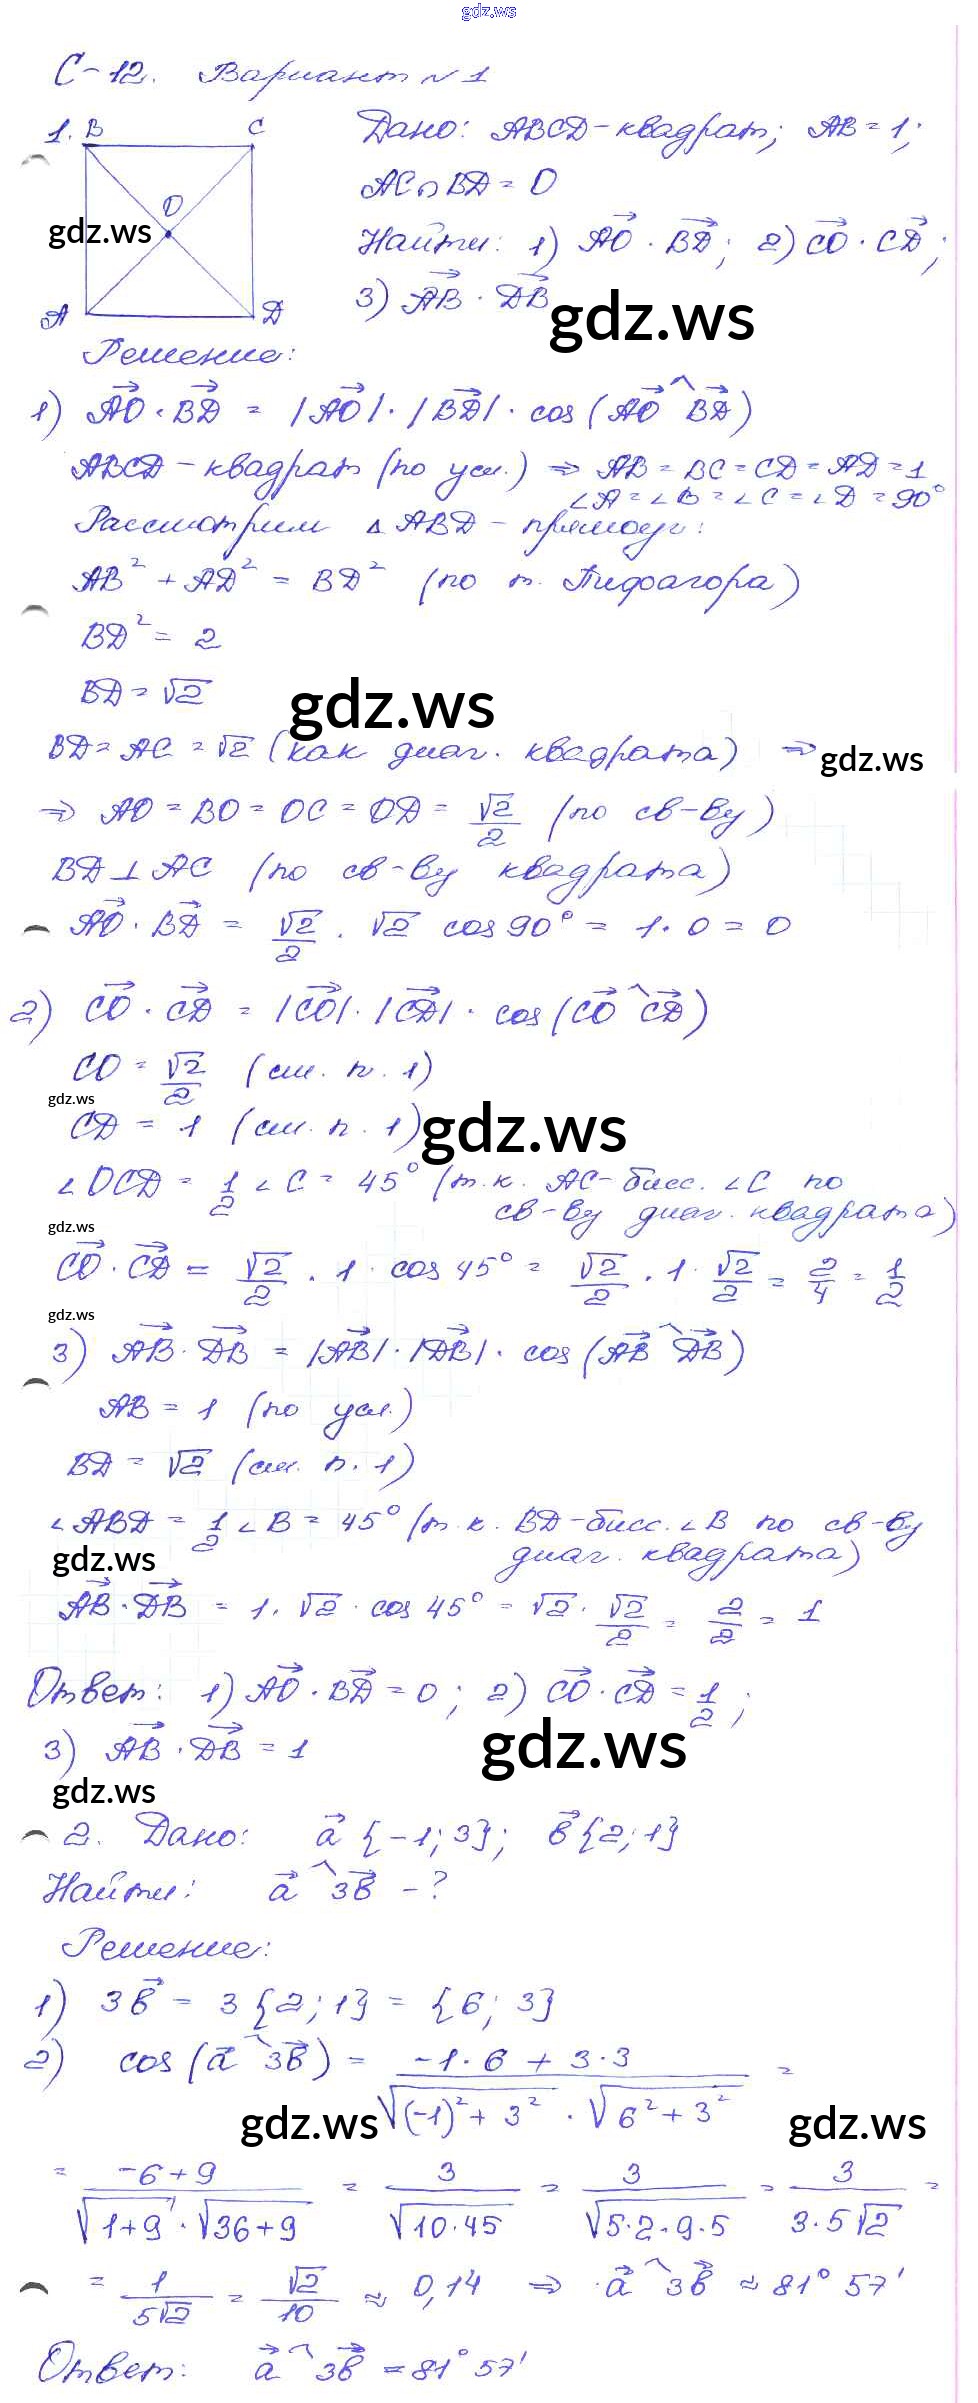 gdz.ws
С-12. Вариант №1
1. B C
Дано: ABCD-квадрат; AB=1;
AC∩BD=O
O
gdz.ws
Найти: 1) AO·BD; 2) CO·CD;
3) AB·DB
gdz.ws
A D
Решение:
1) AO·BD = |AO|·|BD|·cos(AO^BD)
ABCD-квадрат (по усл.) ⇒ AB=BC=CD=AD=1
∠A=∠B=∠C=∠D=90°
Рассмотрим △ABD-прямоуг:
AB²+AD²=BD² (по т. Пифагора)
BD²=2
BD=√2
gdz.ws
BD=AC=√2 (как диаг. квадрата) ⇒
gdz.ws
⇒ AO=BO=OC=OD=√2/2 (по св-ву)
BD⊥AC (по св-ву квадрата)
AO·BD = √2/2 · √2 cos90° = 1·0=0
2) CO·CD = |CO|·|CD|·cos(CO^CD)
CO=√2/2 (см. п. 1)
gdz.ws
CD=1 (см. п. 1)
gdz.ws
∠OCD = 1/2 ∠C = 45° (т.к. AC-бисс. ∠C по
св-ву диаг. квадрата)
gdz.ws
CO·CD = √2/2 · 1 · cos45° = √2/2 · 1 · √2/2 = 2/4 = 1/2
gdz.ws
3) AB·DB = |AB|·|DB|·cos(AB^DB)
AB=1 (по усл.)
BD=√2 (см. п. 1)
∠ABD = 1/2 ∠B = 45° (т.к. BD-бисс. ∠B по св-ву
диаг. квадрата)
gdz.ws
AB·DB = 1·√2·cos45° = √2·√2/2 = 2/2 = 1
Ответ: 1) AO·BD=0; 2) CO·CD=1/2;
3) AB·DB=1
gdz.ws
gdz.ws
2. Дано: a{-1;3}; b{2;1}
Найти: a^3b-?
Решение:
1) 3b = 3{2;1} = {6;3}
2) cos(a^3b) = (-1·6+3·3)/(√((-1)²+3²)·√(6²+3²)) =
gdz.ws gdz.ws
= (-6+9)/(√(1+9)·√(36+9)) = 3/√(10·45) = 3/√(5·2·9·5) = 3/(3·5√2) =
= 1/(5√2) = √2/10 ≈ 0,14 ⇒ a^3b ≈ 81°57'
Ответ: a^3b = 81°57'